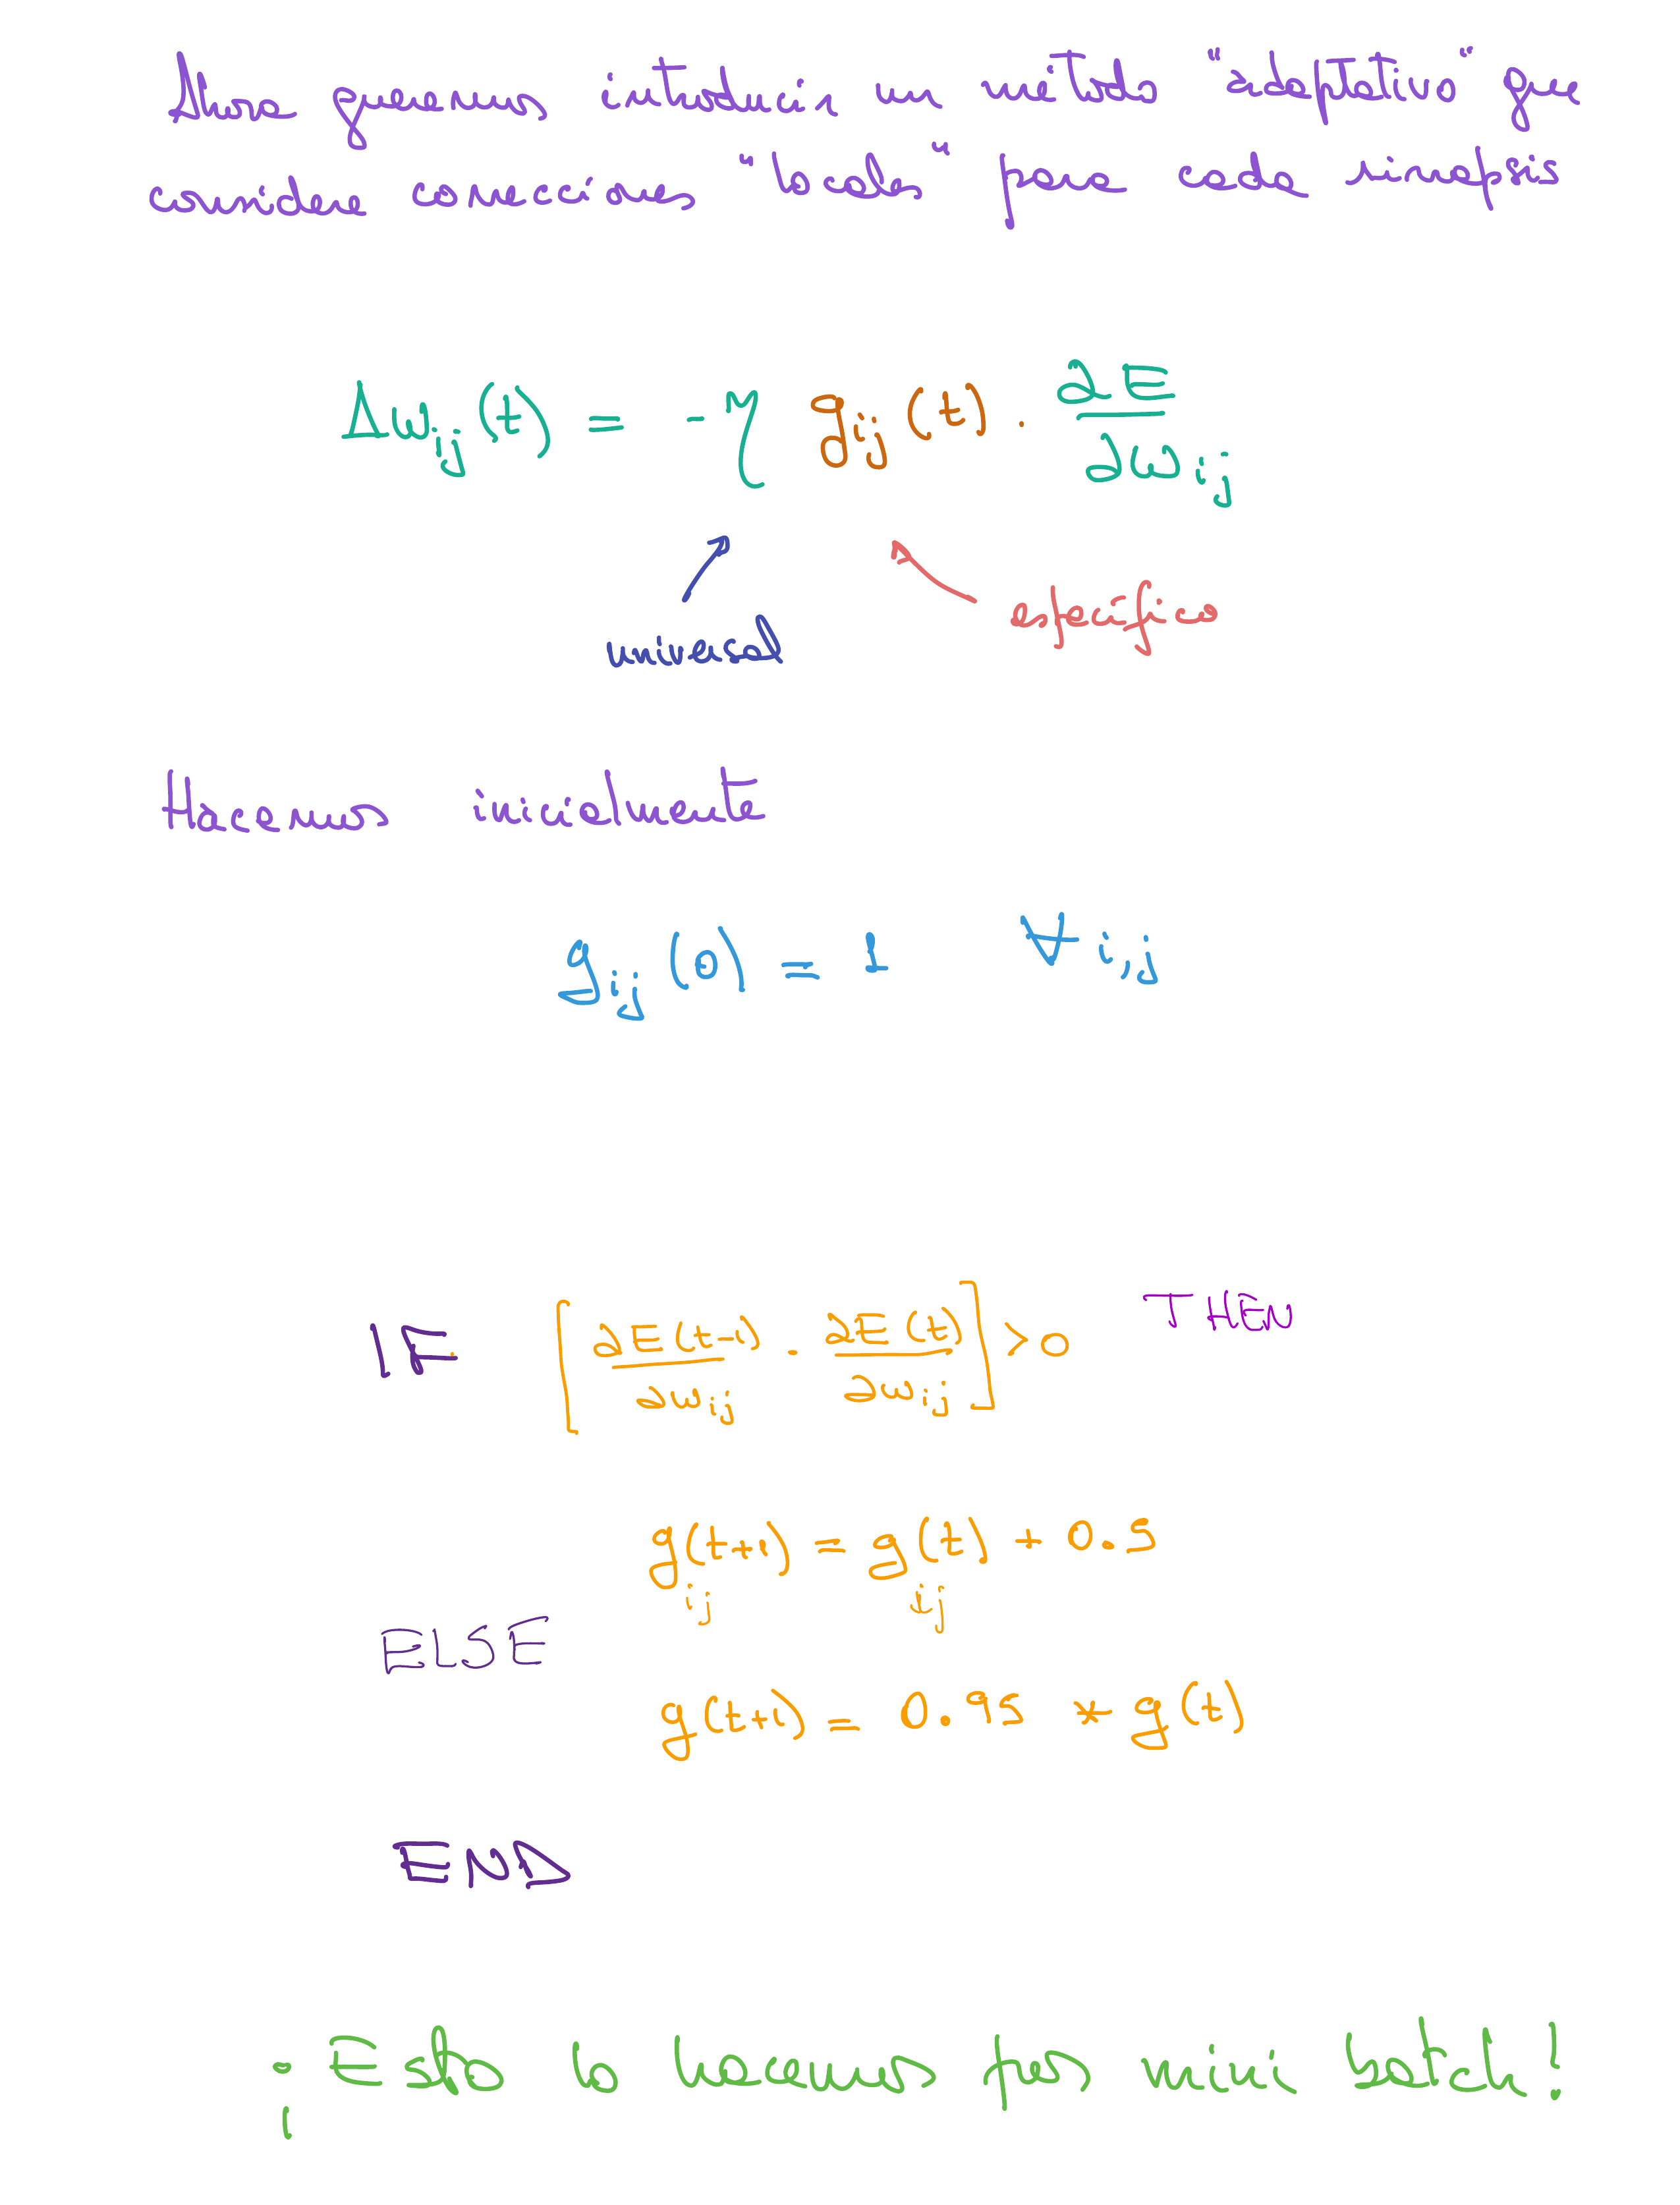 Ahora queremos introducir un método "adaptativo" que
considere correcciones "locales" para cada sinapsis
Δw_ij(t) = -η g_ij(t) · ∂E/∂w_ij
universal
específico
Hacemos inicialmente
g_ij(0) = 1 ∀ i,j
IF [∂E(t-1)/∂w_ij · ∂E(t)/∂w_ij] > 0 THEN
g_ij(t+1) = g_ij(t) + 0.5
ELSE
g(t+1) = 0.95 * g(t)
END
¡Esto lo hacemos por mini batch!